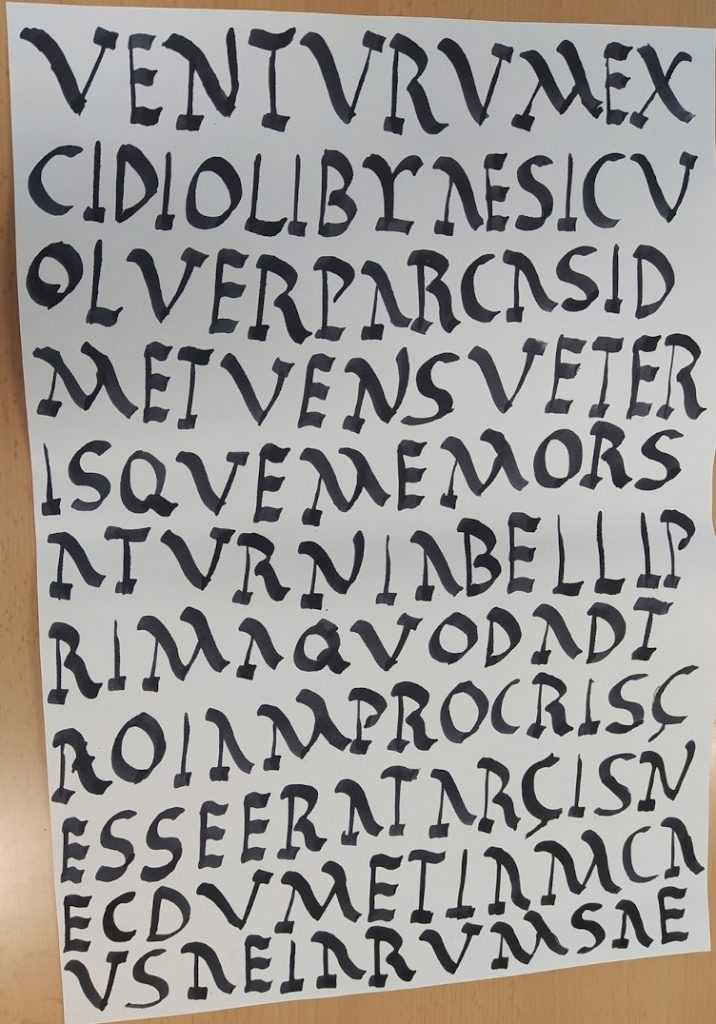 VENTVRVMEX
CIDIOLIBYAESICV
OLVERPARCASID
METVENSVETER
ISQVEMEMORS
ATVRNIABELLIP
RIMAQVODADT
ROIAMPROCRISÇ
ESSEERATARÇISN
ECDVMETIAMCA
VSAEIARVMSAE